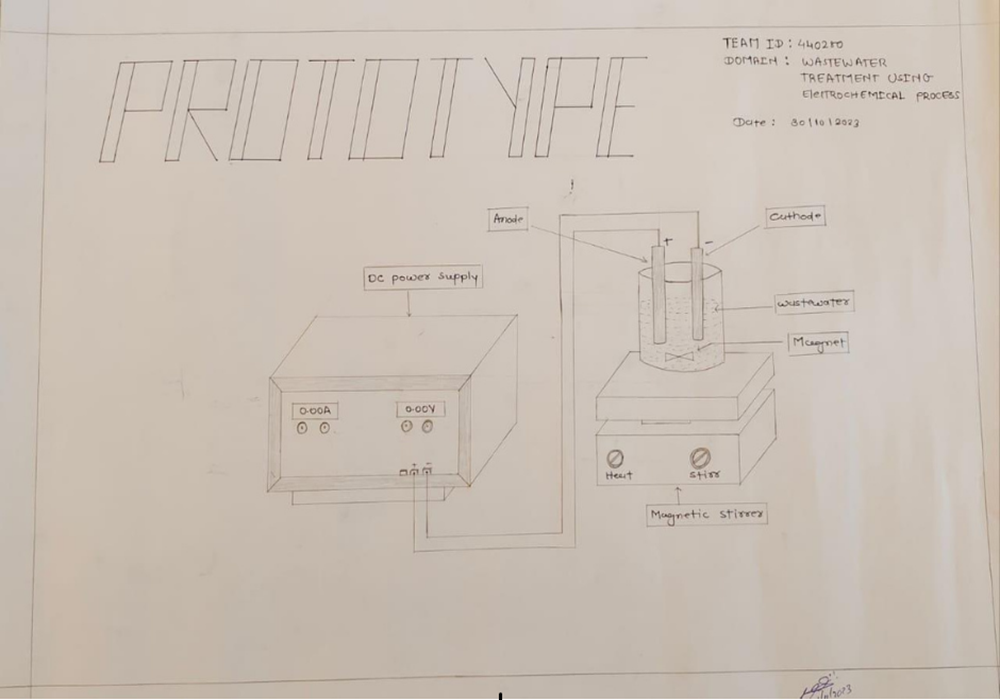 PROTOTYPE
TEAM ID : 440280
DOMAIN : WASTEWATER
TREATMENT USING
ElECTROCHEMICAL PROCESS
Date : 30/10/2023
Anode
Cathode
+ -
DC power supply
wastewater
Magnet
0.00A 0.00V
+ -
Heat Stirr
Magnetic stirrer